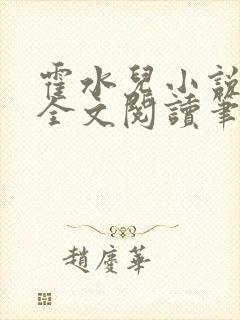 霍水兒小說
全文閱讀筆
趙慶華